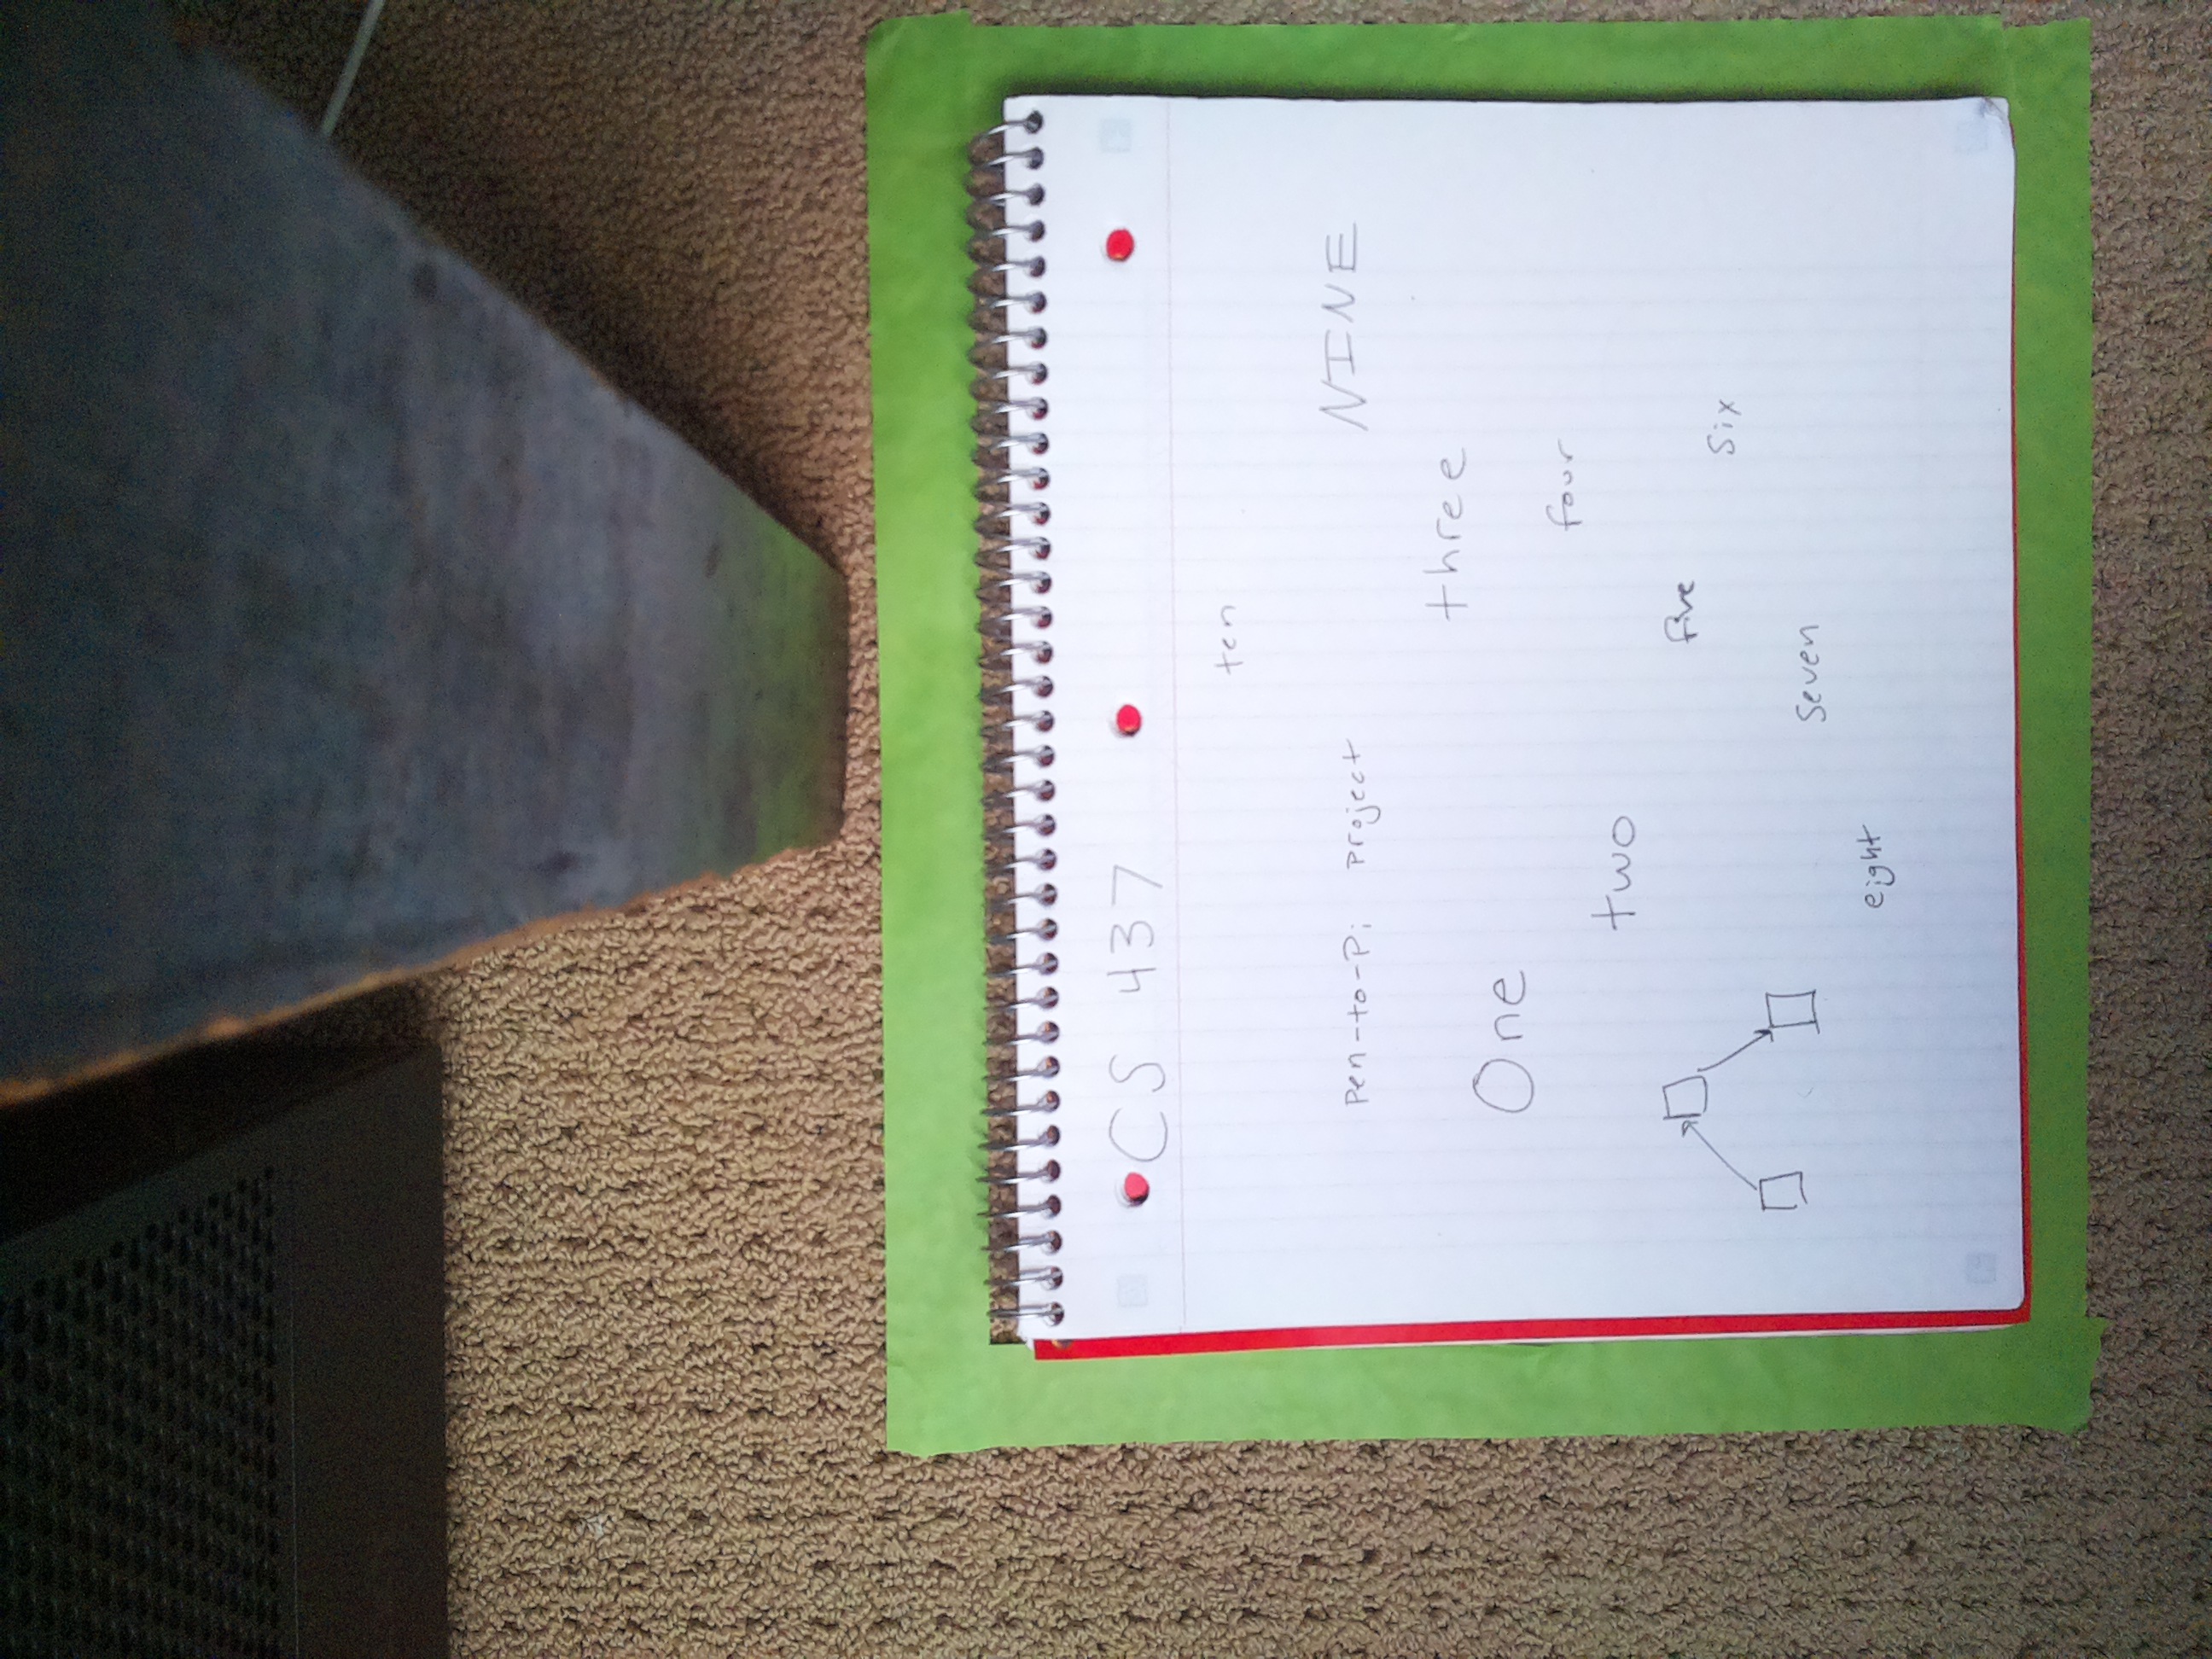 CS 437
ten
Pen-to-Pi project
NINE
One
three
two
four
five
six
seven
eight